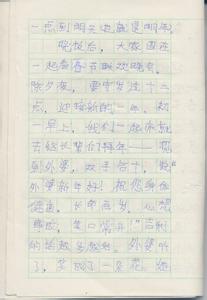 一点到明天也就是明年。
晚饭后，大家围在
一起看春节联欢晚会，
除夕夜，要守岁过十二
点，迎接新的一年。初
一早上，我们一起床就
去给长辈们拜年——
到外婆，双手合十，说"
外婆新年好！祝您身体
健康，长命百岁，心想
事成，笑口常开！"吉利
的话越多越好，外婆听
了，笑成了一朵花，给